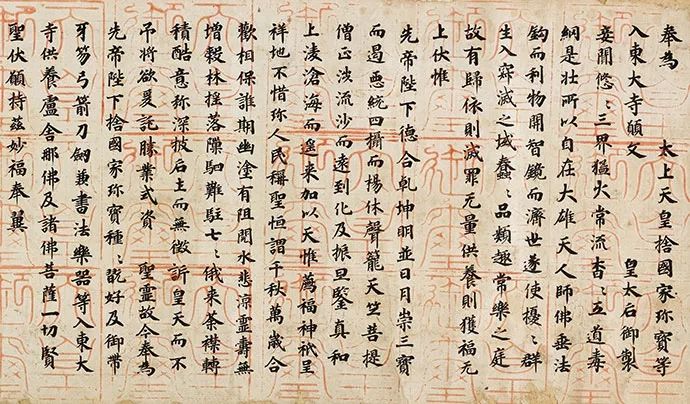 奉為　太上天皇捨國家珎寶等
入東大寺願文　皇太后御製
妾聞悠〻三界猛火常流杳〻五道毒
網是壯所以自在大雄天人師佛垂法
鈎而利物開智鏡而濟世遂使擾〻群
生入寂滅之域蠢〻品類趣常樂之庭
故有歸依則滅罪无量供養則獲福无
上伏惟
先帝陛下德合乾坤明並日月崇三寶
而遏惡統四攝而揚休聲籠天竺菩提
僧正渉流沙而遠到化及振旦鑒真和
上凌滄海而遙來加以天惟薦福神祇呈
祥地不惜珎人民稱聖恒謂千秋萬歲合
歡相保誰期幽塗有阻閱水悲涼靈壽無
增穀林搖落隟駟難駐七〻俄來荼襟轉
積酷意弥深披后土而無徵訴皇天而不
弔將欲爰託勝業式資　聖靈故今奉為
先帝陛下捨國家珎寶種〻翫好及御帶
牙笏弓箭刀劒兼書法樂器等入東大
寺供養盧舍那佛及諸佛菩薩一切賢
聖伏願持茲妙福奉翼